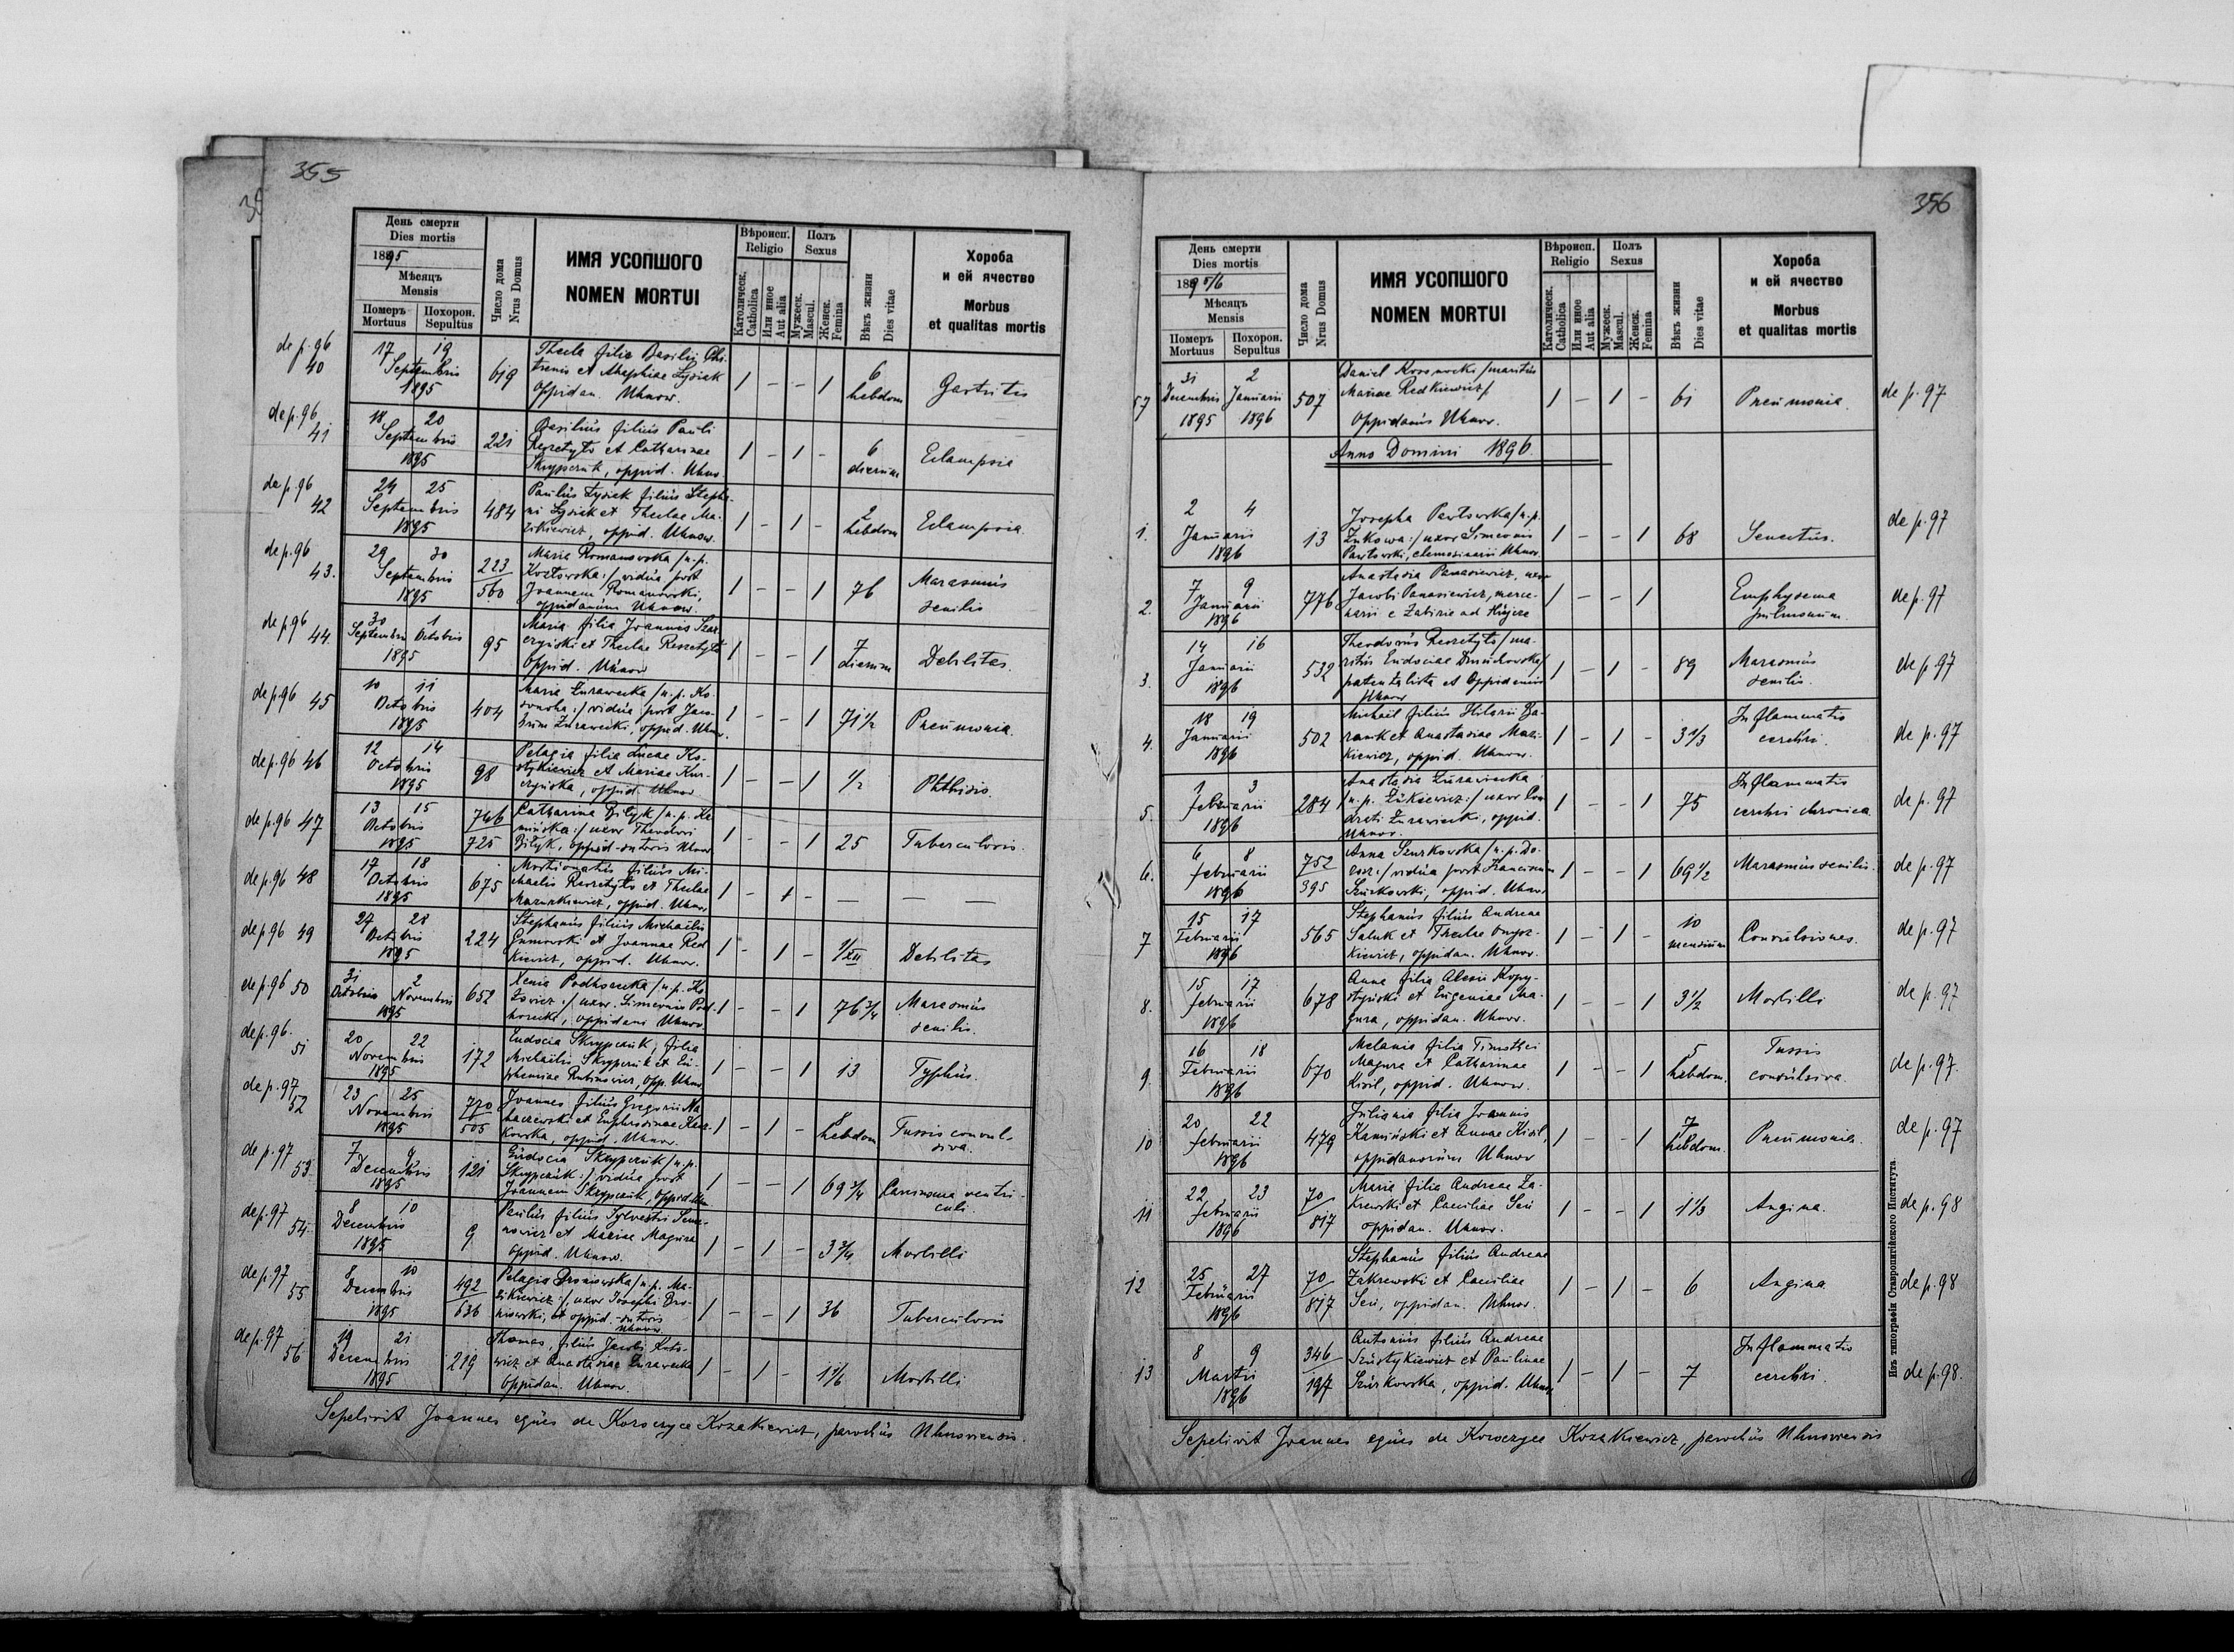 355
День смерти
Dies mortis
1895
Мѣсяцъ
Mensis
Померъ
Mortuus
Похорон.
Sepultus
Число дома
Nrus Domus
ИМЯ УСОПШОГО
NOMEN MORTUI
Вѣроисп.
Religio
Католическ.
Catholica
Или иное
Aut alia
Полъ
Sexus
Мужеск.
Mascul.
Женск.
Femina
Вѣкъ жизни
Dies vitae
Хороба
и ей ячество
Morbus
et qualitas mortis
de p. 96
40
17 19
Septembris
1895
619
Thecla filia Basilii
et Agaphiae Łysiak
oppidan. Uhnow.
1 - - 1
6
hebdom
Gastritis
de p. 96
41
18 20
Septembris
1895
221
Basilius filius Pauli
Reszetyło et Catharinae
Skrypczuk, oppid. Uhnow
1 - 1 -
6
dierum
Eclampsia
de p. 96
42
24 25
Septembris
1895
484
Paulus Łysiak filius Stepha-
ni Łysiak et Theclae Ma-
zikiewicz, oppid. Uhnow.
1 - 1 -
2
hebdom
Eclampsia
de p. 96
43.
29 30
Septembris
1895
223
560
Maria Romanowska /n.p.
Kozłowska:/ vidua post
Joannem Romanowski,
oppidanum Uhnow.
1 - - 1
76
Marasmus
senilis
de p. 96
44.
30 1
Septembris Octobris
1895
95
Maria filia Joannis
et Theclae Reszetyło
oppid. Uhnow
1 - - 1
7
dierum
Debilitas.
de p. 96 45
10 11
Octobris
1895
404
Maria Żurawecka /n.p. Ko-
:/ vidua post
Żurawecki, oppid. Uhnow.
1 - - 1
71 1/2
Pneumonia.
de p. 96 46
12 14
Octobris
1895
98
Pelagia filia Lucae Ko-
stykiewicz et Mariae
oppid. Uhnow.
1 - - 1
1/2
Phthisis.
de p. 96 47
13 15
Octobris
1895
746
725
Catharina Biłyk /n.p. Ka-
mińska:/ uxor Theodori
Biłyk, oppid-sutoris Uhnow
1 - - 1
25
Tuberculosis.
de p. 96 48
17 18
Octobris
1895
675
filius Mi-
chaelis Reszetyło et Theclae
Mazurkiewicz, oppid. Uhnow,
1 - 1 -
—
— —
de p. 96 49
27 28
Octobris
1895
224
Stephanus filius Michaëlis
et Joannae Red-
kiewicz, oppid. Uhnow.
1 - 1 -
1/XII
Debilitas
de p. 96 50
31 2
Octobris Novembris
1895
652
Xenia Podhorecka /n.p. Ko-
:/ uxor. Simeonis Pod-
horecki, oppidani Uhnow
1 - - 1
76 3/4
Marasmus
senilis.
de p. 96.
51
20 22
Novembris
1895
172
Eudocia Skrypczuk, filia
Michaëlis Skrypczuk et Eu-
phemiae Rabinowicz, opp. Uhnow
1 - - 1
13
Typhus.
de p. 97
52
23 25
Novembris
1895
770
505
Joannes filius Gregorii
et Euphrosinae
oppid. Uhnow.
1 - 1 -
8
hebdom
Tussis convul-
siva.
de p. 97
53.
7 9
Decembris
1895
121
Eudocia Skrypczuk /n.p.
Skrypczuk:/ vidua post
Joannem Skrypczuk, oppid. Uhn
1 - - 1
69 3/4
Carcinoma ventri-
culi.
de p. 97
54.
8 10
Decembris
1895
9
Paulus filius Sylvestri
et Mariae Magura
oppid. Uhnow.
1 - 1 -
3 3/4
Morbilli
de p. 97
55
8 10
Decembris
1895
492
636
Pelagia Broniowska /n.p. Ma-
zikiewicz:/, uxor Josephi Bro-
niowski, et oppid.-sutoris
Uhnow
1 - - 1
36
Tuberculosis
de p. 97
56
19 21
Decembris
1895
219
Thomas, filius Jacobi
et Anastasiae Żurawecka
oppidan. Uhnow.
1 - 1 -
1 1/6
Morbilli
Sepelivit Joannes eques de Koroczyce Kozakiewicz, parochus Uhnoviensis.
356
День смерти
Dies mortis
1895/6
Мѣсяцъ
Mensis
Померъ
Mortuus
Похорон.
Sepultus
Число дома
Nrus Domus
ИМЯ УСОПШОГО
NOMEN MORTUI
Вѣроисп.
Religio
Католическ.
Catholica
Или иное
Aut alia
Полъ
Sexus
Мужеск.
Mascul.
Женск.
Femina
Вѣкъ жизни
Dies vitae
Хороба
и ей ячество
Morbus
et qualitas mortis
57
31 2
Decembris Januarii
1895 1896
507
Daniel /maritus
Mariae Redkiewicz/
oppidanus Uhnow.
1 - 1 -
61
Pneumonia.
de p. 97
Anno Domini 1896.
1.
2 4
Januarii
1896
13
Josepha Pawłowska /n.p.
Żukowa:/ uxor Simeonis
Pawłowski, elemosinarii Uhnow.
1 - - 1
68
Senectus.
de p. 97
2.
7 9
Januarii
1896
776
Anastasia Panasiewicz, uxor
Jacobi Panasiewicz, merce-
narii e Zabirie ad Hujcze
1 - - 1
Emphysema
pulmonum.
de p. 97
3.
14 16
Januarii
1896
532
Theodorus Reszetyło /ma-
ritus Eudociae Dmuchowska/
patentalista et oppidanus
Uhnow
1 - 1 -
89
Marasmus
senilis.
de p. 97
4.
18 19
Januarii
1896
502
Michaël filius Hilarii Ba-
ranik et Anastasiae Mazi-
kiewicz, oppid. Uhnow.
1 - 1 -
3 1/3
Inflammatio
cerebri.
de p. 97
5.
1 3
Februarii
1896
284
Anastasia Żurawiecka
/n.p. Łukiewicz:/ uxor Con-
drati Żurawiecki, oppid.
Uhnow.
1 - - 1
75
Inflammatio
cerebri chronica
de p. 97
6.
6 8
Februarii
1896
752
395
Anna Szurkowska /n.p. Do-
:/ vidua post Franciscum
Szurkowski, oppid. Uhnow
1 - - 1
69 1/2
Marasmus senilis.
de p. 97
7
15 17
Februarii
1896
565
Stephanus filius Andreae
Saluk et Theclae
oppidan. Uhnow.
1 - 1 -
10
mensium
Convulsiones.
de p. 97
8.
15 17
Februarii
1896
678
Anna filia Alexii Kopy-
styński et Eugeniae Ma-
gura, oppidan. Uhnow.
1 - - 1
3 1/2
Morbilli
de p. 97
9.
16 18
Februarii
1896
670
Melania filia Timothei
Magura et Catharinae
Kisil, oppid. Uhnow.
1 - - 1
5
hebdom.
Tussis
convulsiva.
de p. 97.
10
20 22
Februarii
1896
479
Juliania filia Joannis
Kamiński et Annae Kisil,
oppidanorum Uhnow
1 - - 1
7
hebdom.
Pneumonia.
de p. 97
11
22 23
Februarii
1896
70
817
Maria filia Andreae Za-
krewski et Caeciliae Seń
oppidan. Uhnow.
1 - - 1
1 1/3
Angina.
de p. 98
12
25 27
Februarii
1896
70
817
Stephanus filius Andreae
Zakrewski et Caeciliae
Seń, oppidan. Uhnow.
1 - 1 -
6
Angina
de p. 98
13
8 9
Martii
1896
346
197
Antonius filius Andreae
Szustykiewicz et Paulinae
Szurkowska, oppid. Uhnow
1 - 1 -
7
Inflammatio
cerebri.
de p. 98.
Изъ типографіи Ставропигійского Института
Sepelivit Joannes eques de Koroczyce Kozakiewicz, parochus Uhnoviensis